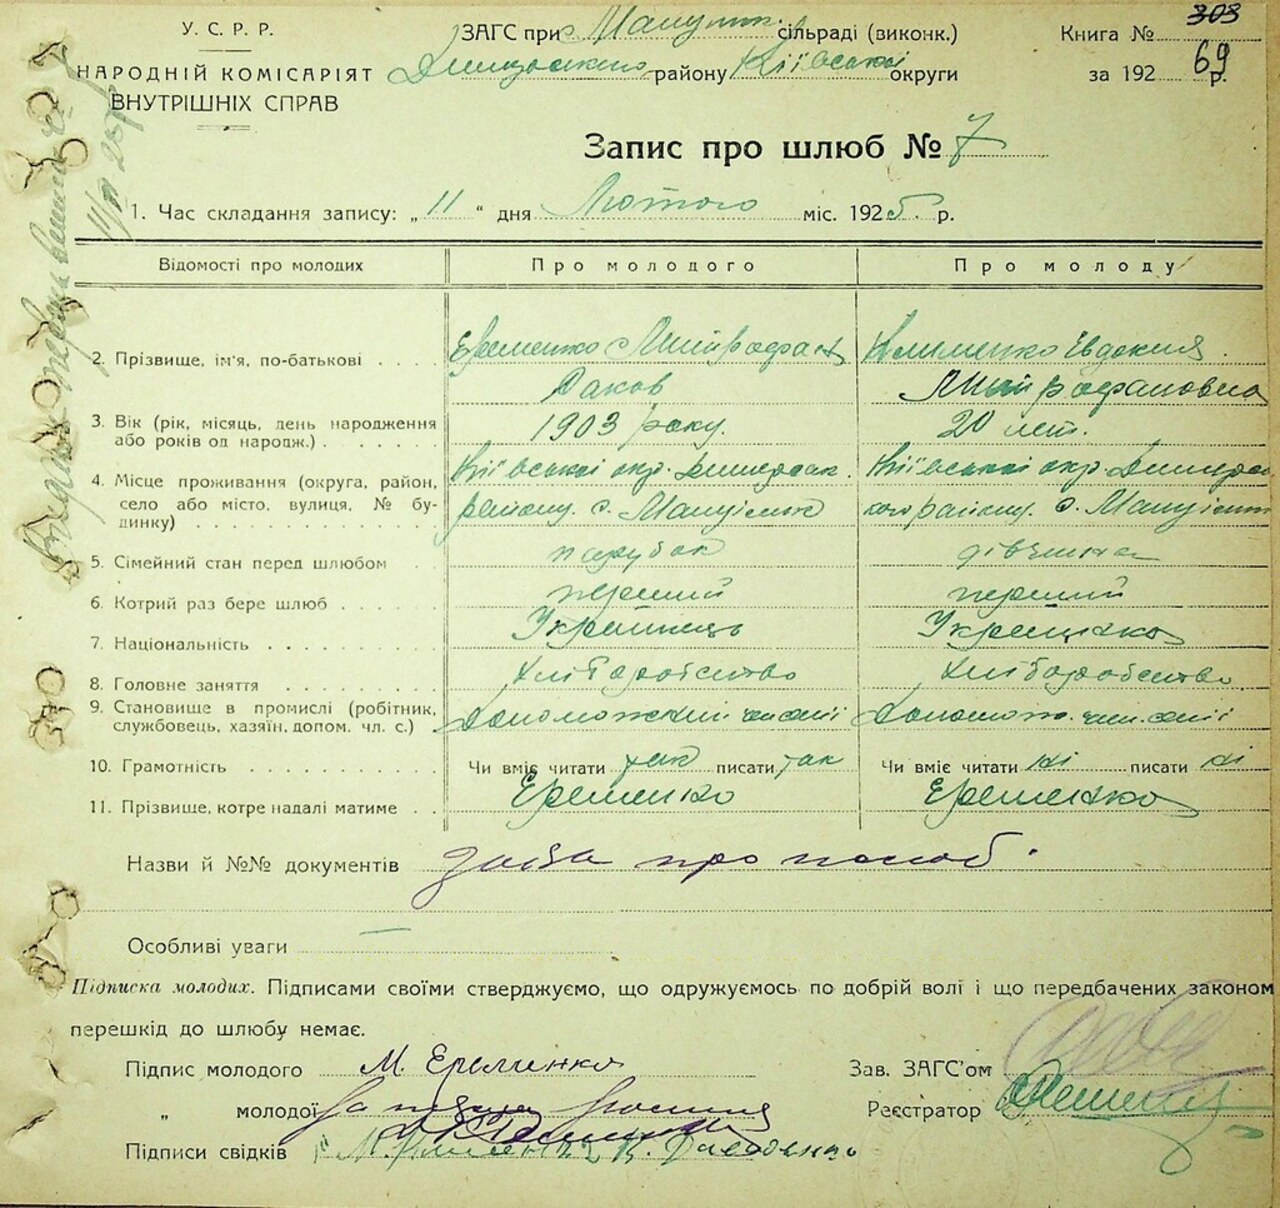 У.С.Р.Р.
НАРОДНІЙ КОМІСАРІЯТ
ВНУТРІШНІХ СПРАВ
ЗАГС при сільраді (виконк.)
району Київської округи
Книга № 303
за 192 р. 69
Запис про шлюб № 7
1. Час складання запису: „11“ дня Лютого міс. 1925 р.
Відомості про молодих Про молодого Про молоду
2. Прізвище, ім'я, по-батькові Еременко Митрофан Клименко Евдокия
Яков Митрофановна
3. Вік (рік, місяць, день народження 1903 року. 20 лет.
або років од народж.)
4. Місце проживання (округа, район, Київської окр. Київської окр.
село або місто, вулиця, № бу- району. с. району. с.
динку)
5. Сімейний стан перед шлюбом парубок дівчина
6. Котрий раз бере шлюб перший перший
7. Національність Українець Українка
8. Головне заняття хліборобство хліборобство
9. Становище в промислі (робітник,
службовець, хазяїн, допом. чл. с.)
10. Грамотність Чи вміє читати так писати так Чи вміє читати ні писати ні
11. Прізвище, котре надалі матиме Еременко Еременко
Назви й №№ документів
Особливі уваги —
Підписка молодих. Підписами своїми стверджуємо, що одружуємось по добрій волі і що передбачених законом
перешкід до шлюбу немає.
Підпис молодого М. Еременко Зав. ЗАГС'ом
„ молодої Реєстратор
Підписи свідків